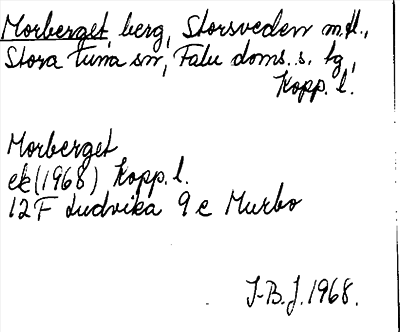 Morberget, berg, Storsveden m.fl.,
Stora Tuna sn, Falu doms. s. tg,
Kopp. l.
Morberget
ek (1968) Kopp. l.
12F Ludvika 9c Murbo
I-B.J. 1968.